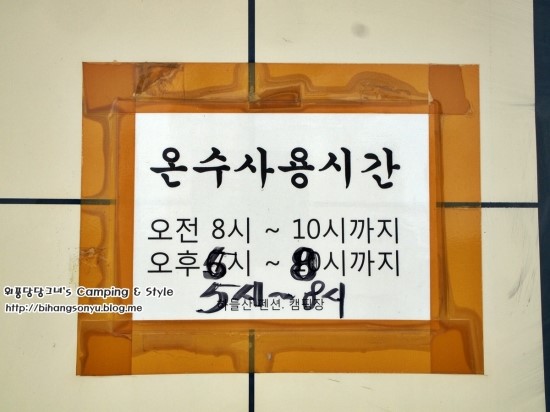 온수사용시간
오전 8시 ~ 10시까지
오후 6시 ~ 8시까지
5시~8시
펜션. 캠핑장
위풍당당그녀's Camping & Style
http://bihangsonyu.blog.me